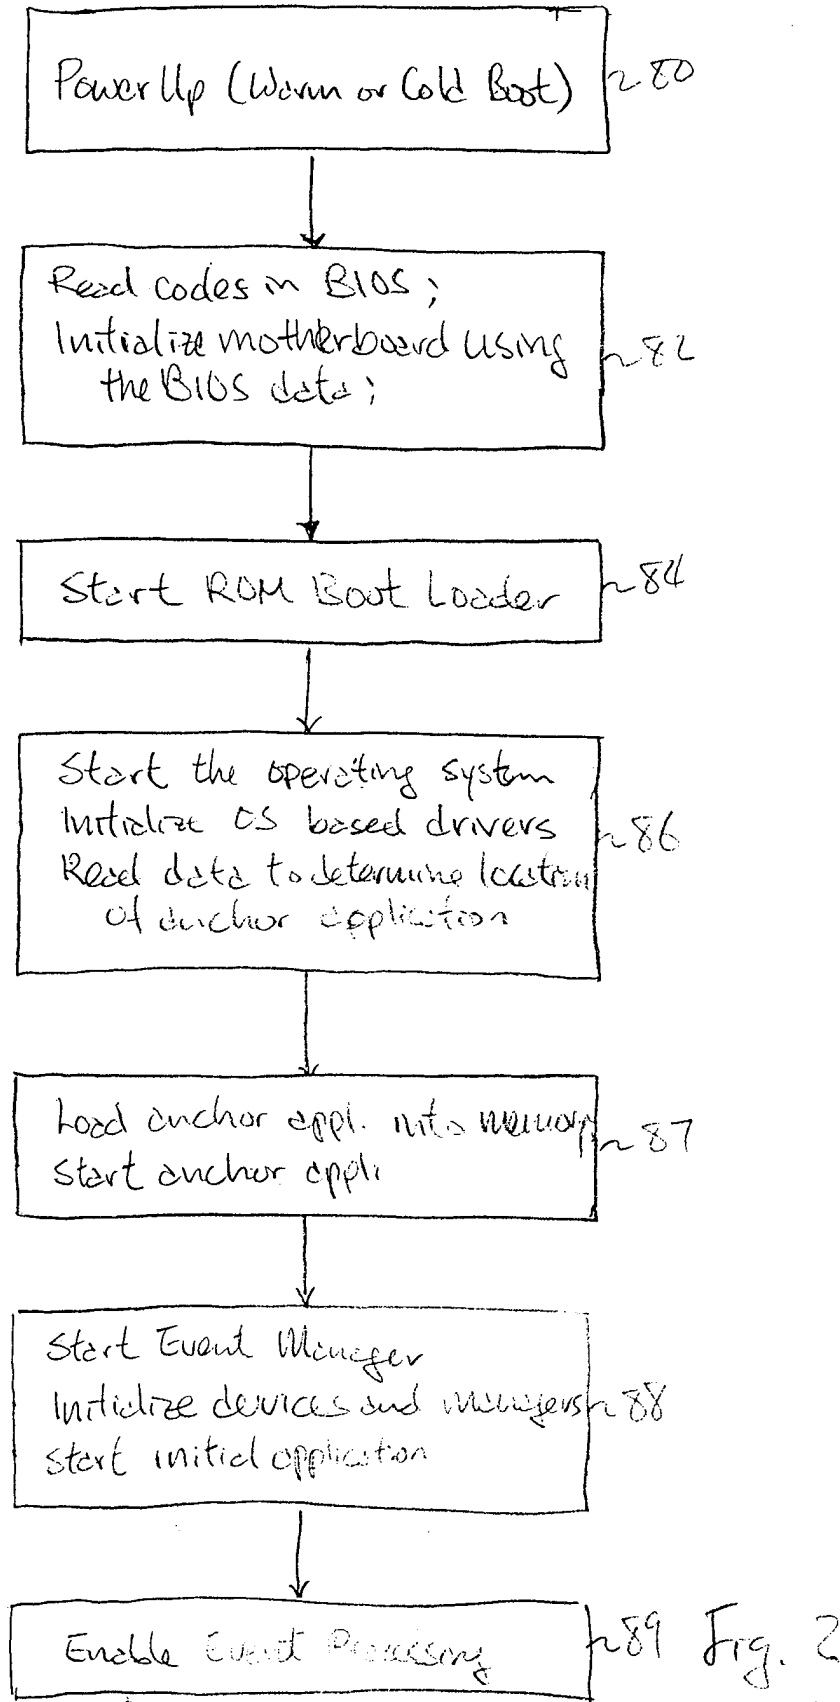 Power Up (Warm or Cold Boot)
80
Read codes in BIOS;
Initialize motherboard using
the BIOS data;
82
Start ROM Boot Loader
84
Start the operating system
Initialize OS based drivers
Read data to determine location
of anchor application
86
Load anchor appl. into memory
Start anchor appli
87
Start Event Manager
Initialize devices and managers
Start initial application
88
Enable Event Processing
89
Fig. 2